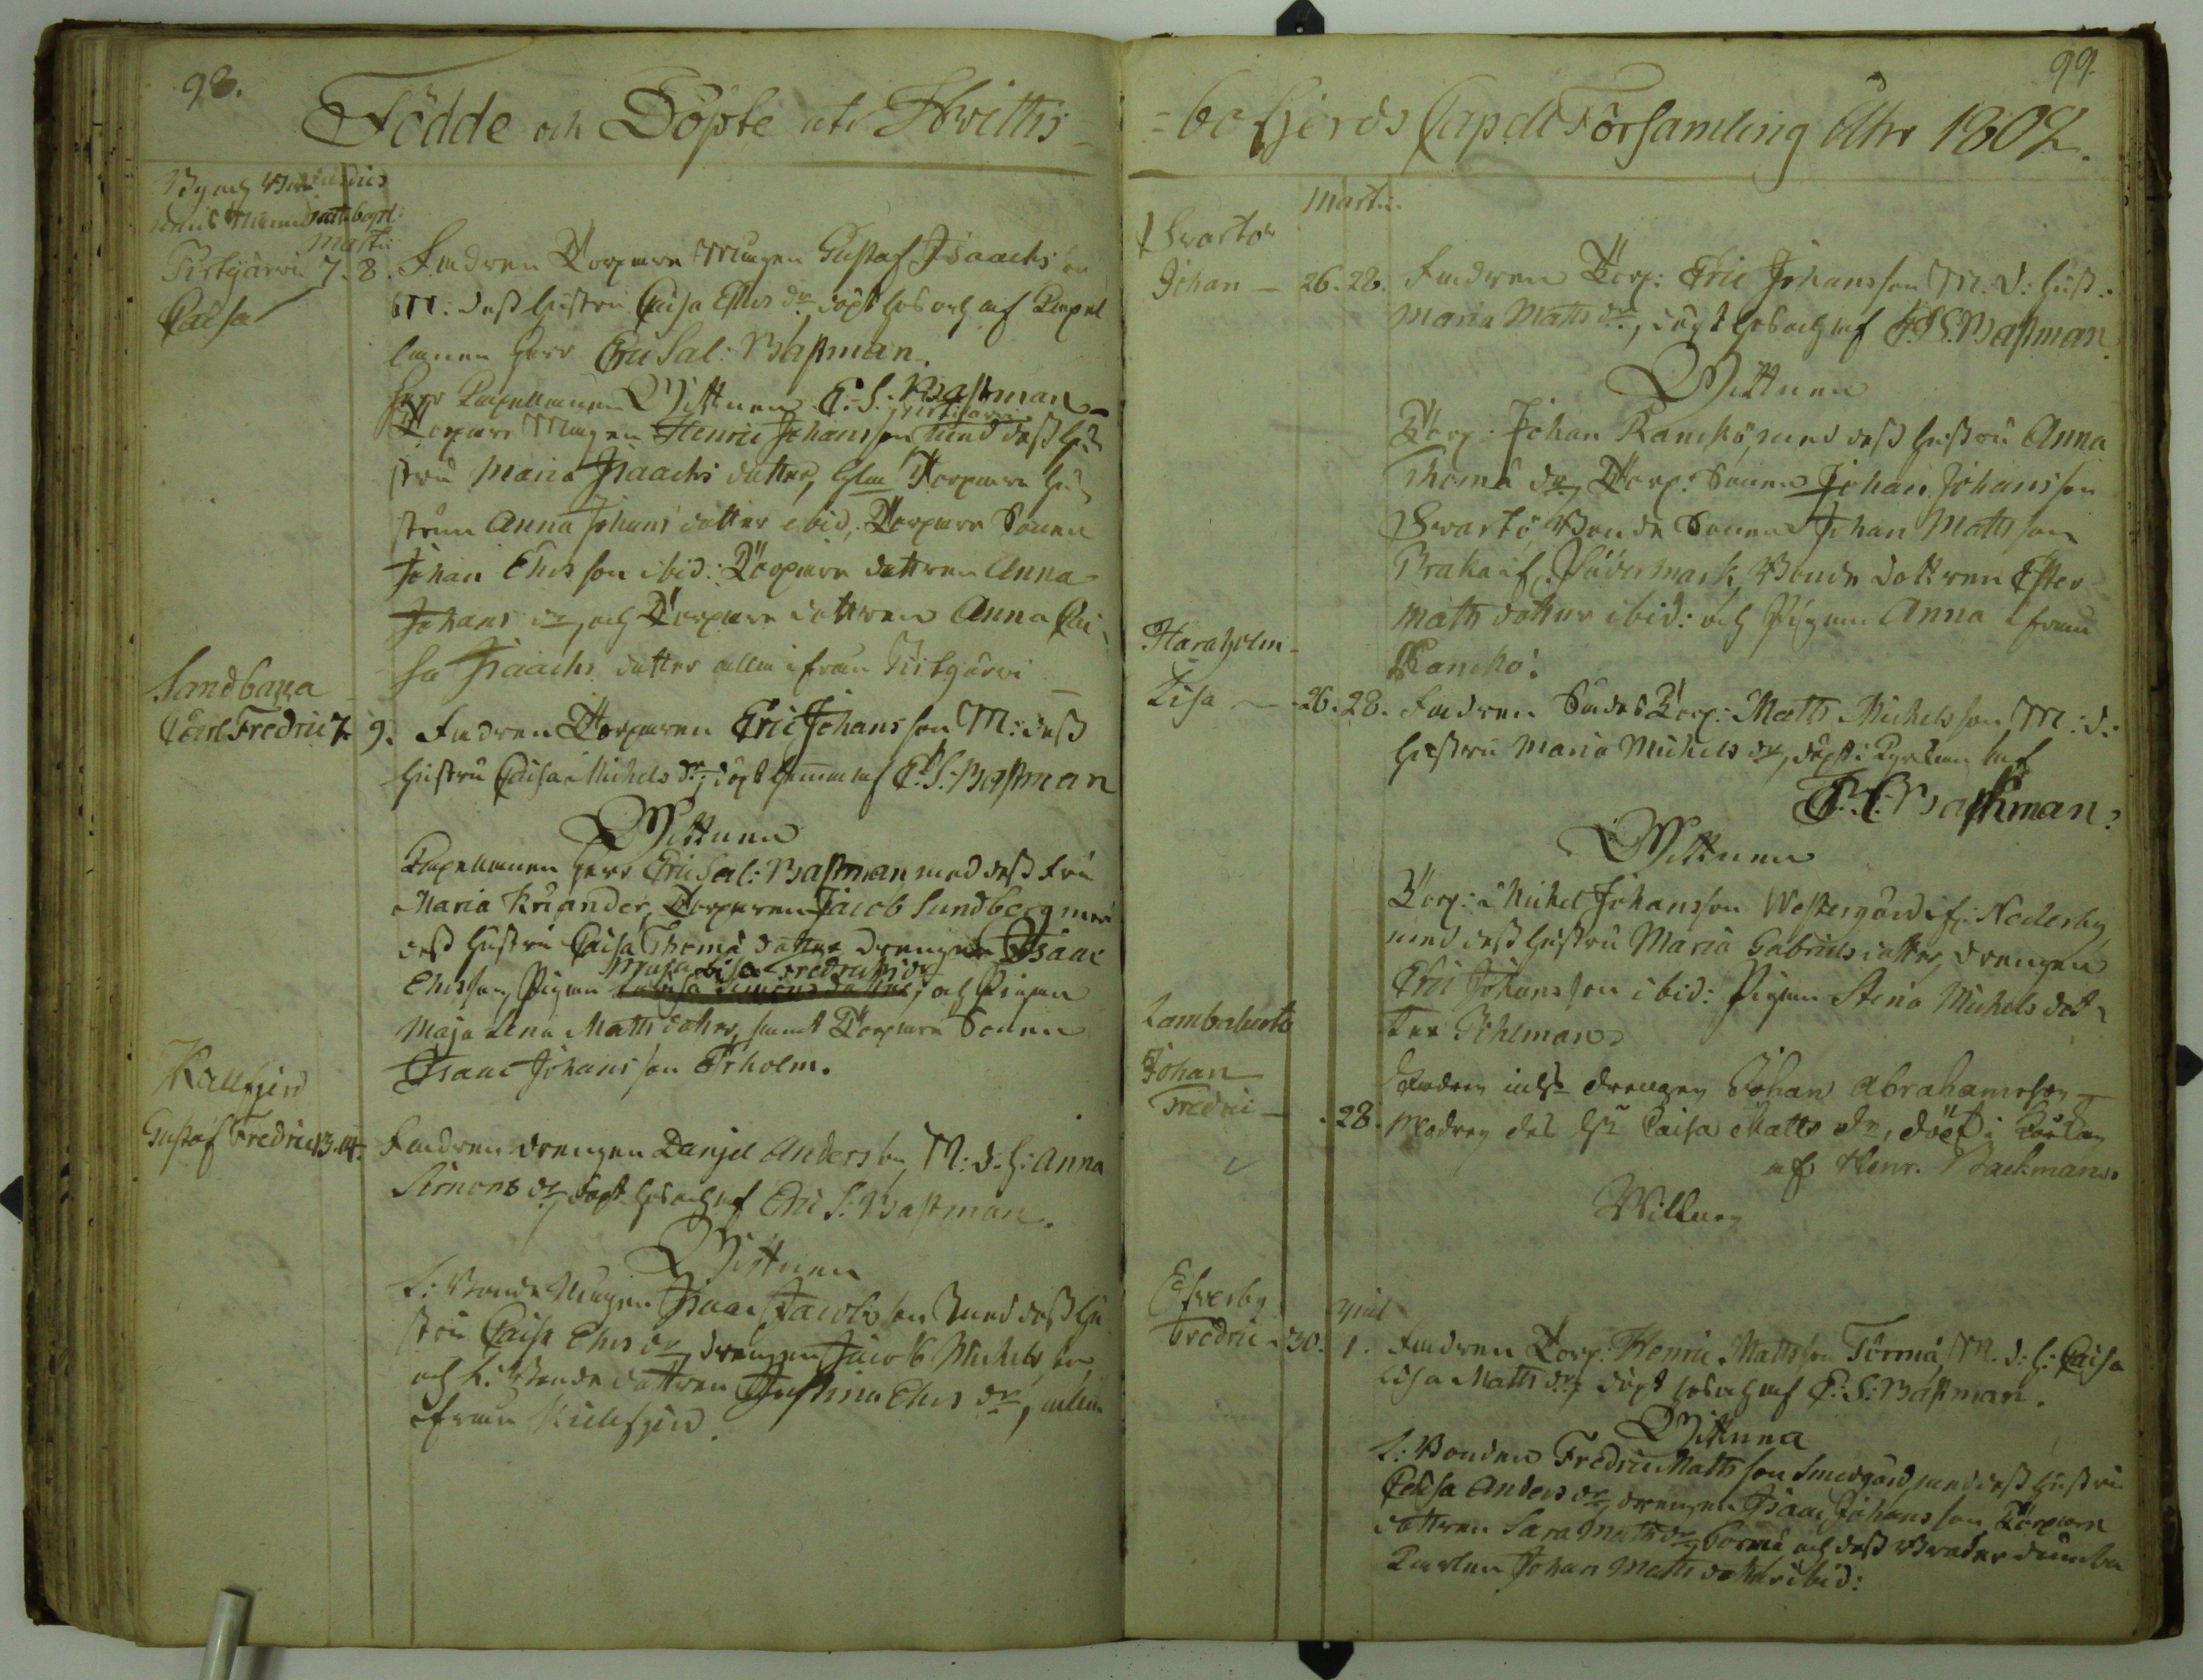 98.
Födde och Döpte uti Hvittis-
By och
Martii
Tirkjärvi 7. 8. Fadren Torpare Mågen Gustaf Isaachs son
Caisa
M: dess Hustru Caisa Elies dr, döpt hos och af Capel
lanen Herr Eric Sal: Bastman.
Herr Capellanen Wittnen E. S. Bastman
Torpare Mågen Henric Johansson med dess Hu
stru Maria Isaachs dotter, Torpare Hu
strun Anna Johans dotter ibid, Torpare Sonen
Johan Elies son ibid: Torpare dottren Anna
Johans dr, och Torpare dottren Anna Cai
sa Isaachs dotter alla ifrån Tirkjärvi
Sandbacka
Carl Fredric 7. 9. Fadren Torparen Eric Johans son M: dess
Hustru Caisa Michels dr, döpt hemma af E. S. Bastman
Wittnen
Capellanen Herr Eric Sal: Bastman med dess Fru
Maria Kriander, Torparen Jacob Sundberg med
dess Hustru Caisa Thomæ dotter drengen Isaac
Fredrichs dr
Elisson, Pigan och Pigan
Maja Lena Matts dotter, samt Torpare Sonen
Isaac Johans son Örholm.
Kallfjerd
Gustaf Fredric 13. 14. Fadren drengen Danjel Anders son, M: d. h: Anna
Simons dr, döpt hos och af Eric S: Bastman.
Wittnen
L: Bonde Mågen Isaac Jacobs son med dess Hu
stru Caisa Elies dr, drengen Jacob Michels son
och L: Bonde dottren Justina Elies dr, alla
ifrån Kallfjerd.
99.
=bofjerds Capell Församling Åhr 1802.
Martii.
Svartö
Johan — 26. 28. Fadren Torp: Eric Johansson M: d: Hust:
Maria Matts dr, döpt hos och af E. S. Bastman.
Wittnen
Torp: Johan Ramskö, med dess Hustru Anna
Thomæ dr, Torp: Sonen Johan Johansson
Svartö, Bonde Sonen Johan Mattsson
Praka if: Södermark, Bonde dottren Ester
Matts dotter ibid: och Pigan Anna ifrån
Ramskö.
Haraholm
Lisa — 26. 28. Fadren Torp: Matts Michelsson M: d:
Hustru Maria Michels dr, döpt i Kyrkan af
E. S. Bastman.
Wittnen
Torp: Michel Johansson Westergård if: Nederby
med dess Hustru Maria Gabriels dotter, drengen
Eric Johansson ibid: Pigan Stina Michels dot
ter Pihlman.
Lambaluoto
Johan
Fredric — 28. Fadren drengen Johan Abrahamsson
Modren des Caisa Matts dr, döpt i Kyrkan
af Henr. Backman.
Wittnen
Efverby
April
Fredric 30. 1. Fadren Torp: Henric Mattsson Törmä, M. d: h: Caisa
Lisa Matts dr, döpt hos och af E: S: Bastman.
Wittnen
L: Bonden Fredric Mattsson Smedgård med dess Hustru
Caisa Anders dr, drengen Isaac Johansson Torpare
dottren Sara Matts dr, Törmä och dess
Johan Matts dotter ibid: